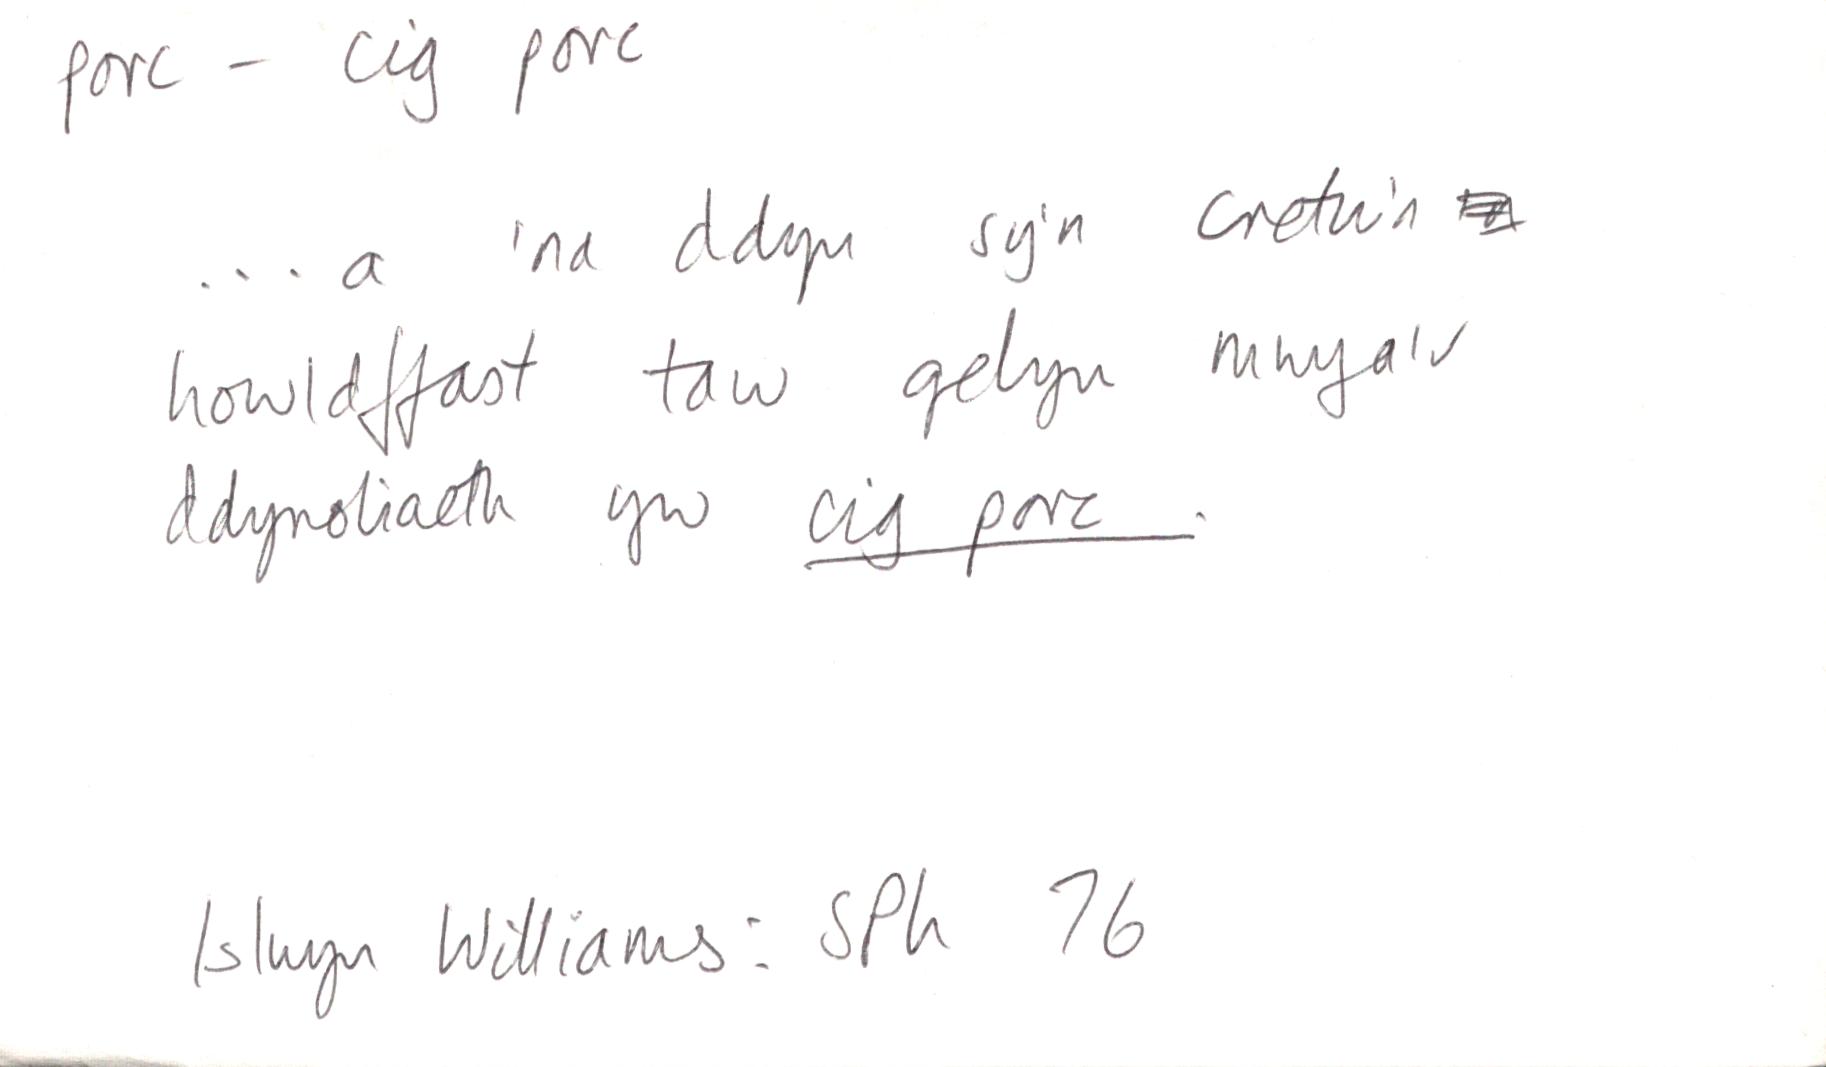 porc - cig porc
... a 'na ddyn sy'n cretu'n
howldffast taw gelyn mwya'r
ddynoliaeth yw cig porc.
Islwyn Williams: SPh 76